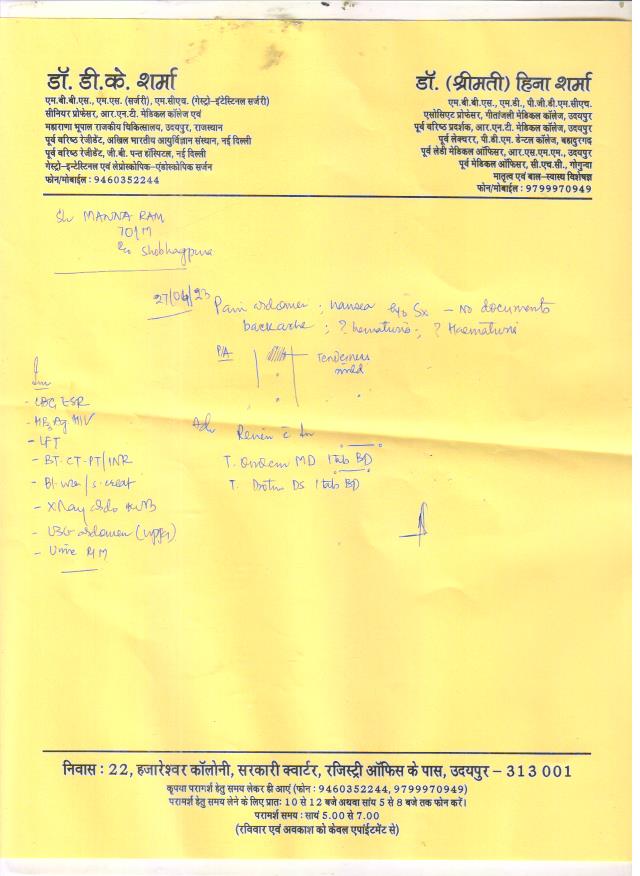 डॉ. डी.के. शर्मा
एम.बी.बी.एस., एम.एस. (सर्जरी), एम.सीएच. (गेस्ट्रो–इंटेस्टिनल सर्जरी)
सीनियर प्रोफेसर, आर.एन.टी. मेडिकल कॉलेज एवं
महाराणा भूपाल राजकीय चिकित्सालय, उदयपुर, राजस्थान
पूर्व वरिष्ठ रेजीडेंट, अखिल भारतीय आयुर्विज्ञान संस्थान, नई दिल्ली
पूर्व वरिष्ठ रेजीडेंट, जी.बी. पन्त हॉस्पिटल, नई दिल्ली
गेस्ट्रो–इन्टेस्टिनल एवं लेप्रोस्कोपिक–एंडोस्कोपिक सर्जन
फोन/मोबाईल : 9460352244
डॉ. (श्रीमती) हिना शर्मा
एम.बी.बी.एस., एम.डी., पी.जी.डी.एम.सीएच.
एसोसिएट प्रोफेसर, गीतांजली मेडिकल कॉलेज, उदयपुर
पूर्व वरिष्ठ प्रदर्शक, आर.एन.टी. मेडिकल कॉलेज, उदयपुर
पूर्व लेक्चरर, पी.डी.एम. डेन्टल कॉलेज, बहादुरगढ़
पूर्व लेडी मेडिकल ऑफिसर, आर.एस.एम.एम., उदयपुर
पूर्व मेडिकल ऑफिसर, सी.एच.सी., गोगुन्दा
मातृत्व एवं बाल–स्वास्थ्य विशेषज्ञ
फोन/मोबाईल : 9799970949
MANNA RAM
70/M
Shobhagpura
27/04/23
Pain abdomen ; nausea h/o Sx – No documents
backache ; ? hematuria ; ? Haematuria
P/A
Tenderness
mild
Inv
- CBC ESR
- HBsAg HIV
- LFT
- BT-CT-PT/INR
- Bl. urea / s. creat
- X Ray abdo KUB
- USG abdomen
- Urine R/M
Adv Review c Inv
T. MD 1 tab BD
T. DS 1 tab BD
निवास : 22, हजारेश्वर कॉलोनी, सरकारी क्वार्टर, रजिस्ट्री ऑफिस के पास, उदयपुर – 313 001
कृपया परामर्श हेतु समय लेकर ही आएं (फोन : 9460352244, 9799970949)
परामर्श हेतु समय लेने के लिए प्रातः 10 से 12 बजे अथवा सांय 5 से 8 बजे तक फोन करें।
परामर्श समय : सायं 5.00 से 7.00
(रविवार एवं अवकाश को केवल एपॉइंटमेंट से)